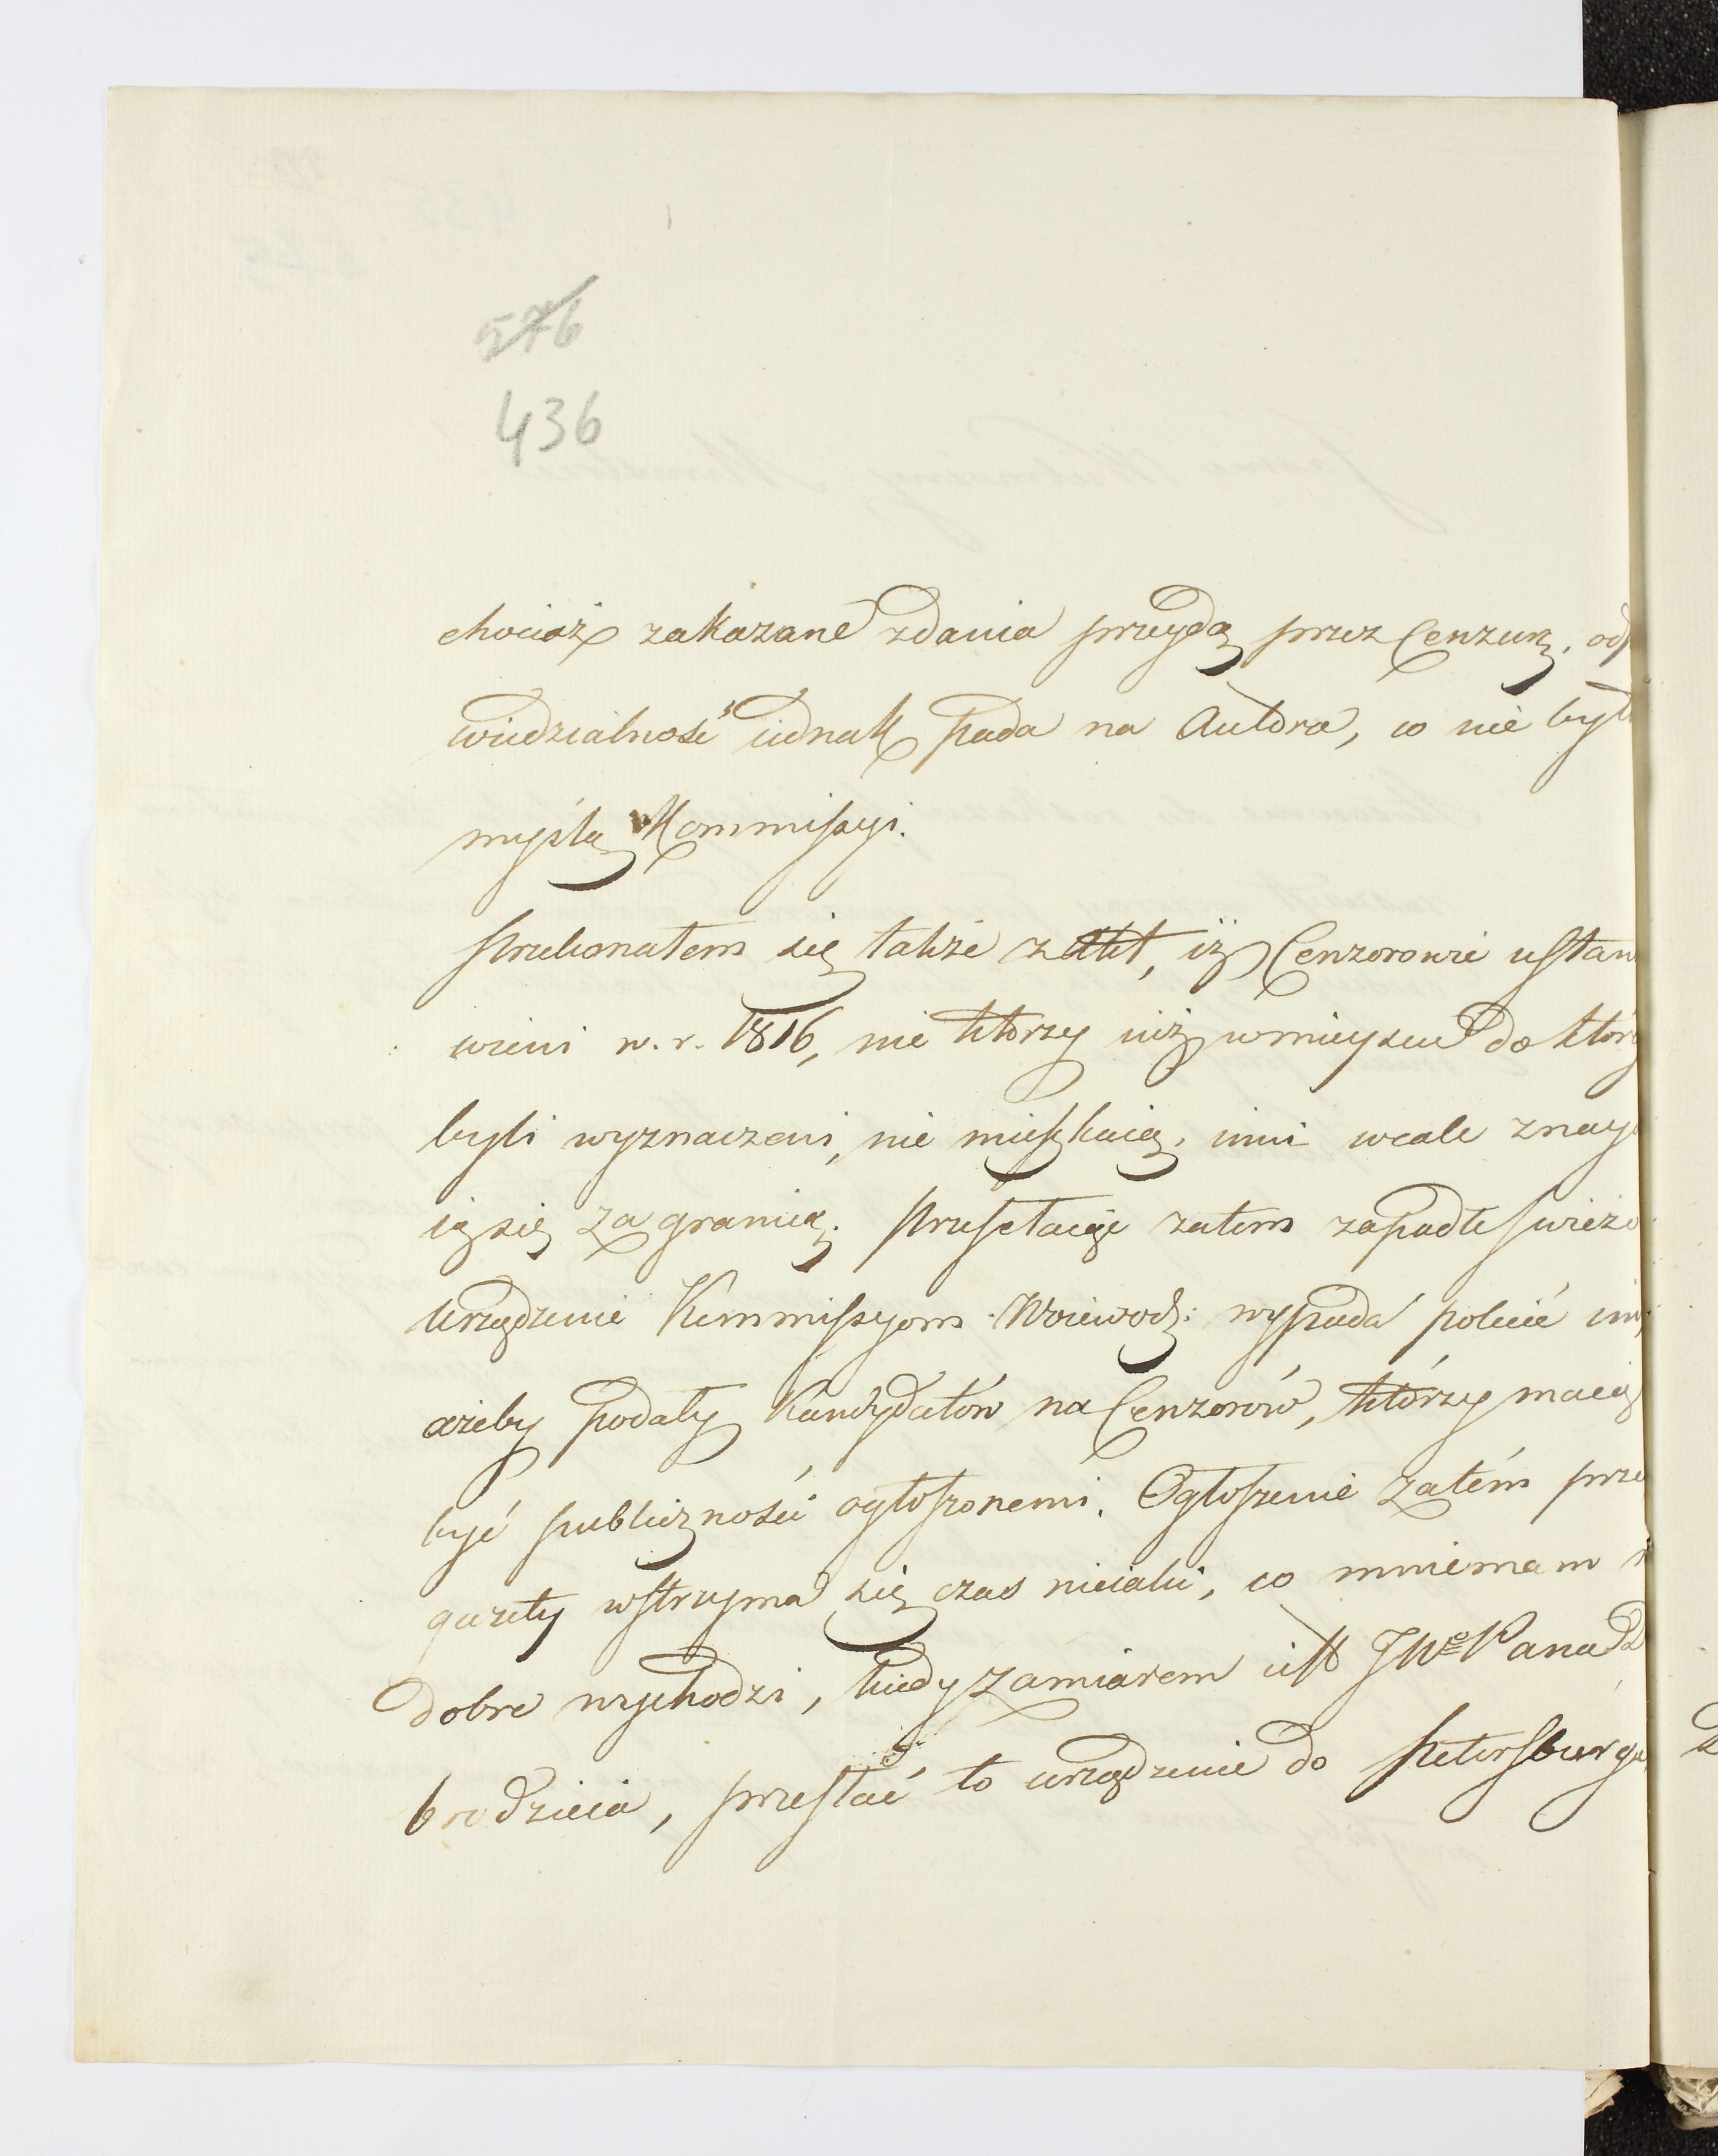 576
436
chociaż zakazane zdania przeydą przez Cenzurę, od
wiedzialność iednak pada na Autora, co nie był
myślą Kommissyi.
Przekonałem się także z akt, iż Cenzorowie ustan
wieni w. r. 1816, nie którzy iuż w mieyscu do któr
byli wyznaczeni, nie mieszkaią, inni wcale znay
ią się za granicą. Przesełaiąc zatem zapadłe świeżo
Urządzenie Kommissyom Woiewodz: wypada polecić im
ażeby podały Kandydatów na Cenzorów, którzy maią
być publiczności ogłoszonemi. Ogłoszenie zatém prze
gazety wstrzyma się czas nieiaki, co mniemam
dobre wychodzi, kiedy zamiarem iest JWº Pana D
brodzieia, przesłać to urządzenie do Petersburga